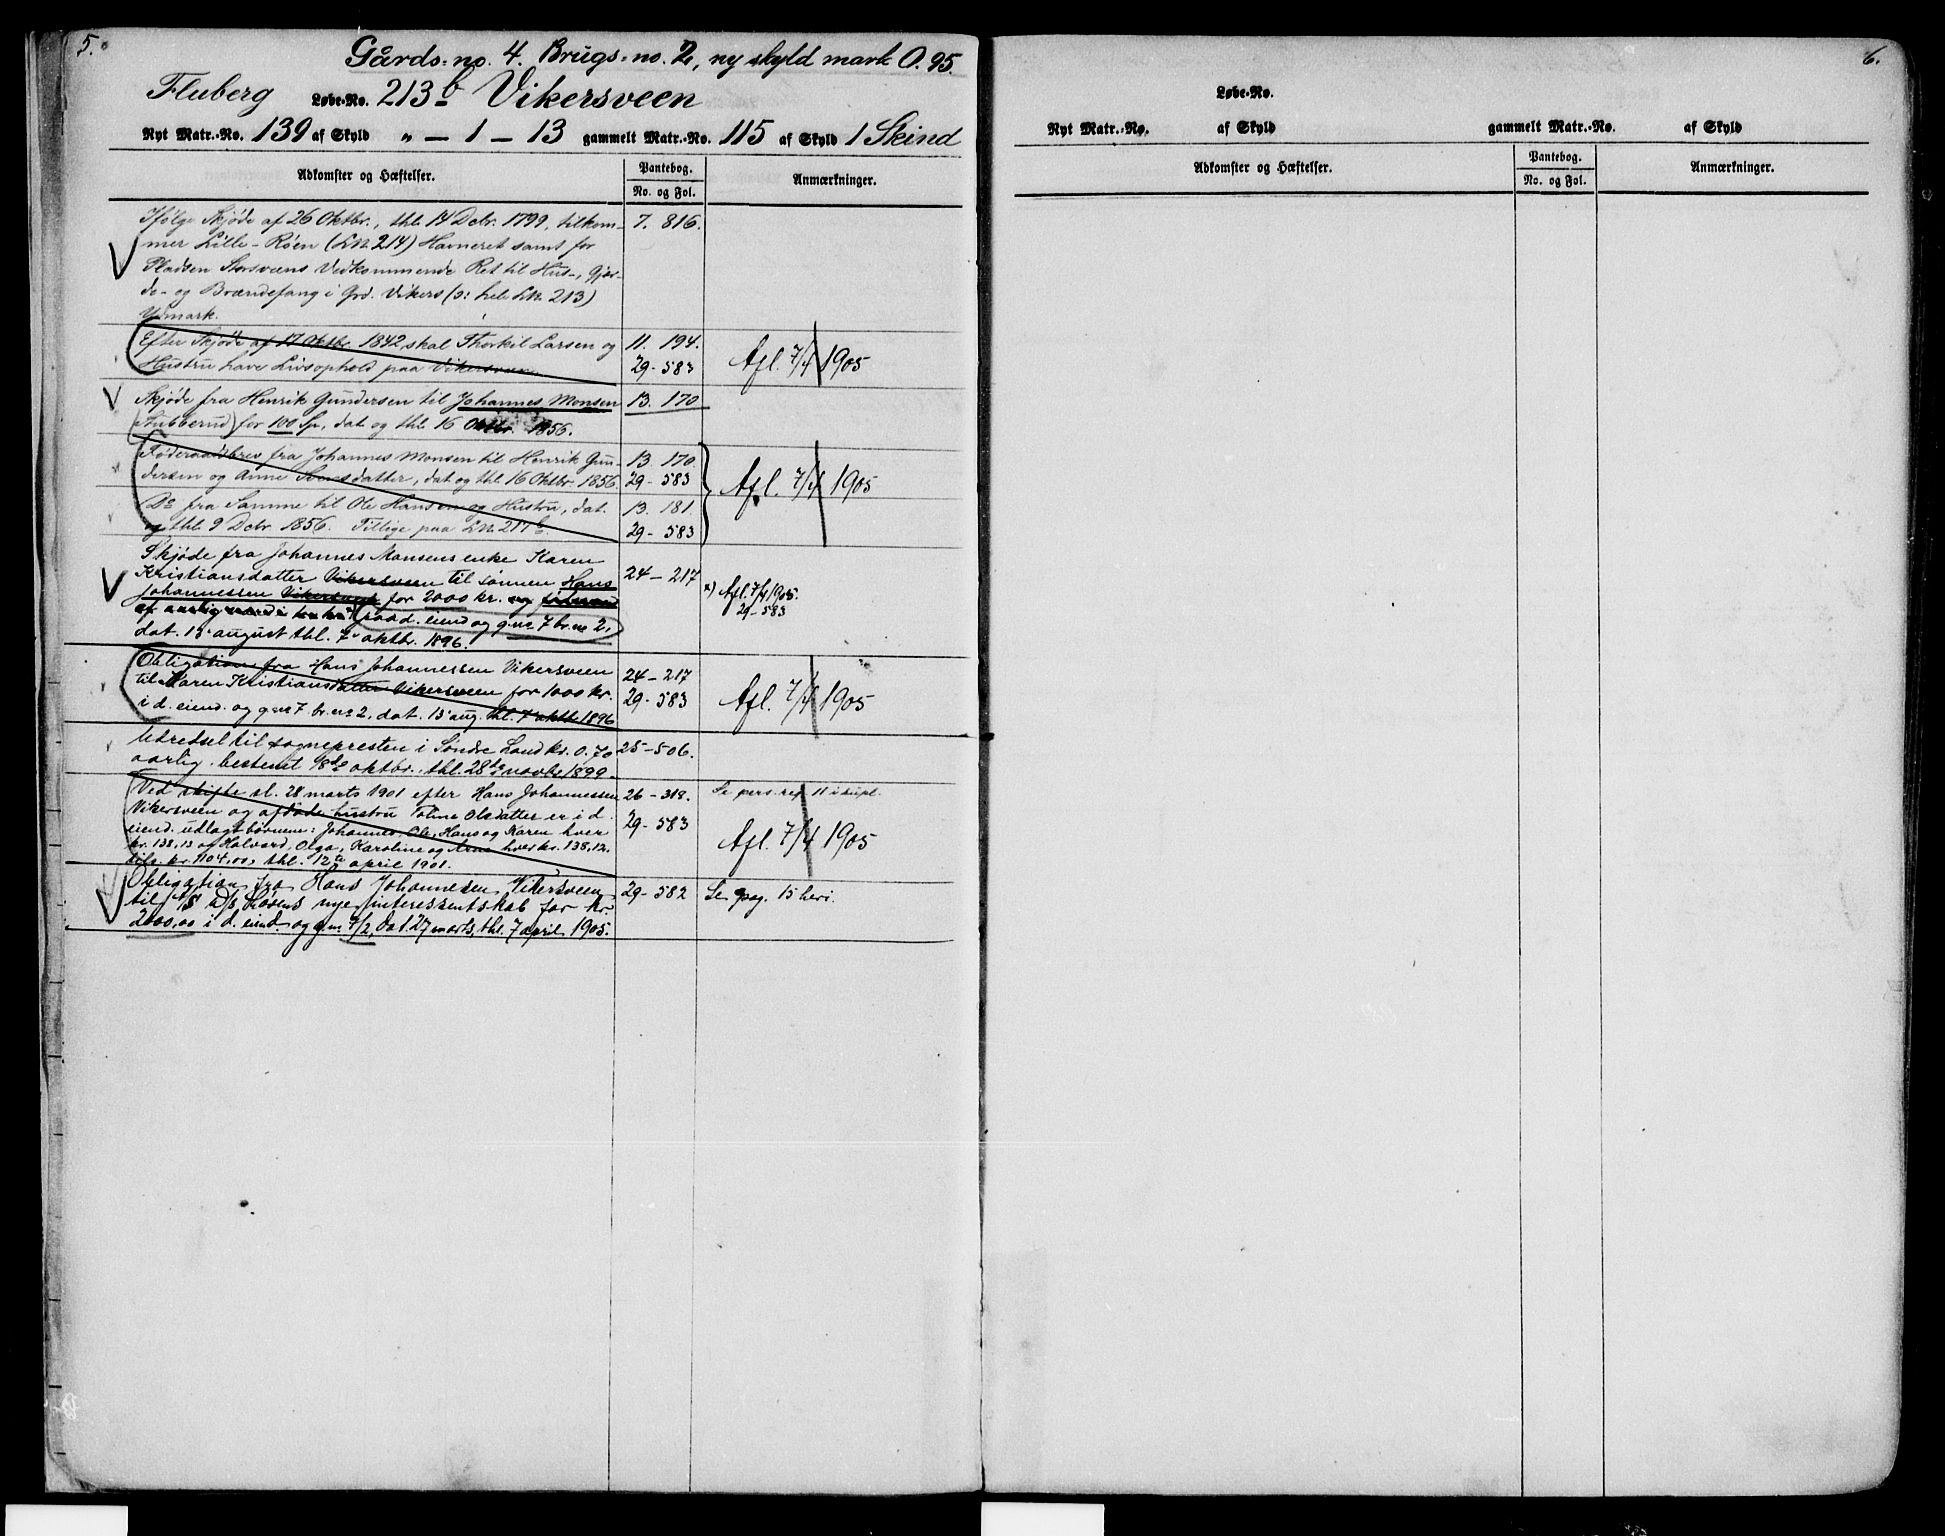 5.
Gårds-no. 4. Brugs-no. 2, ny skyld mark 0.95.
Fluberg Løbe-No. 213b Vikersveen
Nyt Matr.-No. 139 af Skyld " – 1 – 13 gammelt Matr.-No. 115 af Skyld 1 Skind
Adkomster og Hæftelser. Pantebog. Anmærkninger.
No. og Fol.
Ifølge Skjøde af 26 Oktbr., thl. 14 Debr. 1799, tilkom- 7. 816.
mer Lille-Røen (LN. 214) Havneret samt for
Pladsen Storsveens Vedkommende Ret til Hus-, Gjær-
de- og Brændefang i Grd. Vikers (o: hele LN. 213)
Udmark.
Efter Skjøde af 17 Oktbr. 1842 skal Thorkil Larsen og 11. 194.
Hustru have Livsophold paa Vikersveen. 29 - 583 Afl. 7/4 1905
Skjøde fra Henrik Gundersen til Johannes Monsen 13. 170
(Stubberud) for 100 Sp., dat. og thl. 16 Oktbr. 1856.
Føderaadsbrev fra Johannes Monsen til Henrik Gun- 13. 170.
dersen og Anne datter, dat. og thl. 16 Oktbr. 1856. 29 - 583 Afl. 7/4 1905
Do fra Samme til Ole Hansen og Hustru, dat. 13. 181.
og thl. 9 Debr. 1856. Tillige paa LN. 217b. 29 - 583
Skjøde fra Johannes Monsens enke Karen
Kristiansdatter Vikersveen til sønnen Hans 24 – 217 x) Afl. 7/4 1905.
Johannessen Vikersveen for 2000 kr. og 29 - 583
af aarlig værdi paa d. eiend og g.no 7 br.no 2,
dat. 15 august thl. 7 oktbr. 1896.
Obligation fra Hans Johannessen Vikersveen 24 – 217
til Karen Kristiansdatter Vikersveen for 1000 kr. 29 - 583 Afl. 7/4 1905
i d. eiend. og g.no 7 br.no 2, dat. 15 aug. thl. 7 oktb. 1896
Udredsel til sognepresten i Søndre Land kr. 0.70 25 – 506.
aarlig. bestemt 18de oktbr., thl. 28de novbr 1899.
Ved skifte sl. 28 marts 1901 efter Hans Johannessen 26 – 318. Se pers. reg. 11 i dupl.
Vikersveen og afdøde hustru Toline Olsdatter er i d. 29 - 583
eiend. udlagt børnene: Johannes, Ole, Hans og Karen hver Afl. 7/4 1905
kr. 138,13 og Halvard, Olga, Karoline og Arne hver kr. 138,12.
tils. kr. 1104,00, thl. 12te april 1901.
Obligation fra Hans Johannesen Vikersveen 29 - 582 Se pag. 15 heri.
til nye interessentskab for kr.
2000,00 i d. eiend. og g.no 7/2, dat. 27 marts, thl. 7 april 1905.
6.
Løbe-No.
Nyt Matr.-No. af Skyld gammelt Matr.-No. af Skyld
Adkomster og Hæftelser. Pantebog. Anmærkninger.
No. og Fol.